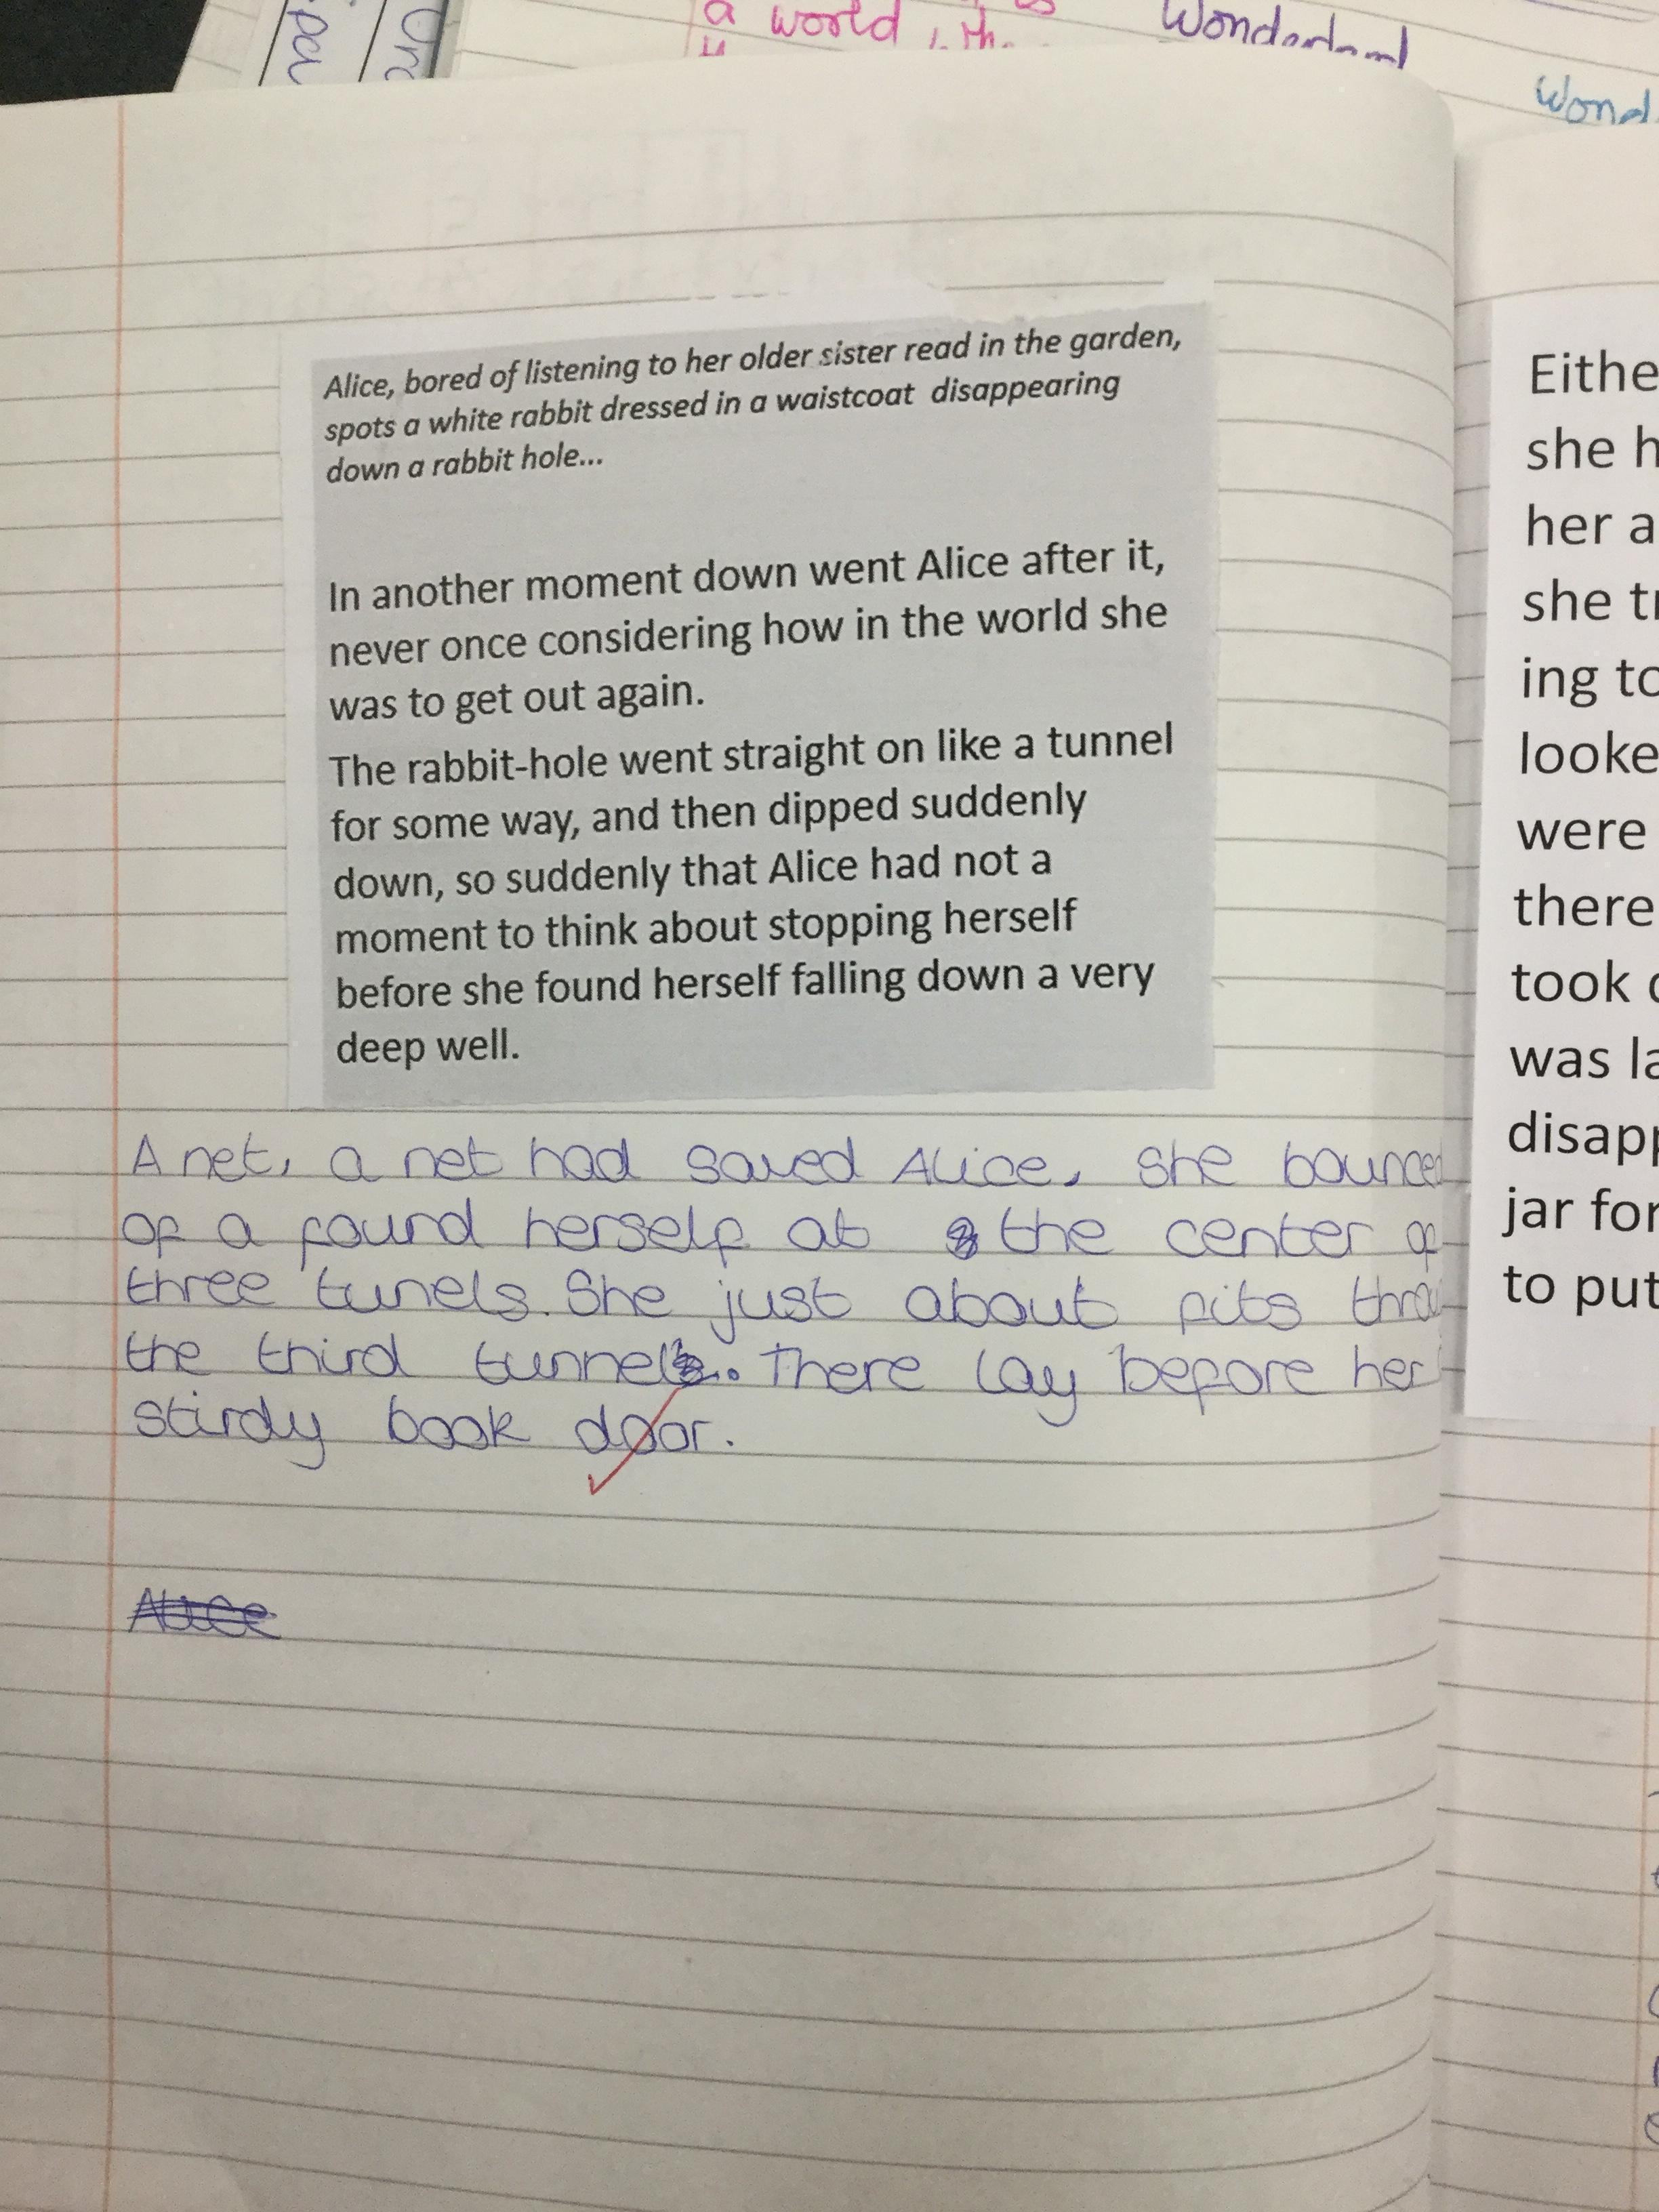 a world, th
Wonderland
Wond
Alice, bored of listening to her older sister read in the garden,
spots a white rabbit dressed in a waistcoat disappearing
down a rabbit hole...
In another moment down went Alice after it,
never once considering how in the world she
was to get out again.
The rabbit-hole went straight on like a tunnel
for some way, and then dipped suddenly
down, so suddenly that Alice had not a
moment to think about stopping herself
before she found herself falling down a very
deep well.
A net, a net had saved Alice. She bounced
of a found herself at the center of
three tunels. She just about fits throu
the third tunnel. There lay before her
stirdy book door.
Alice
Eithe
she h
her a
she tr
ing to
looke
were
there
took
was la
disapp
jar for
to put